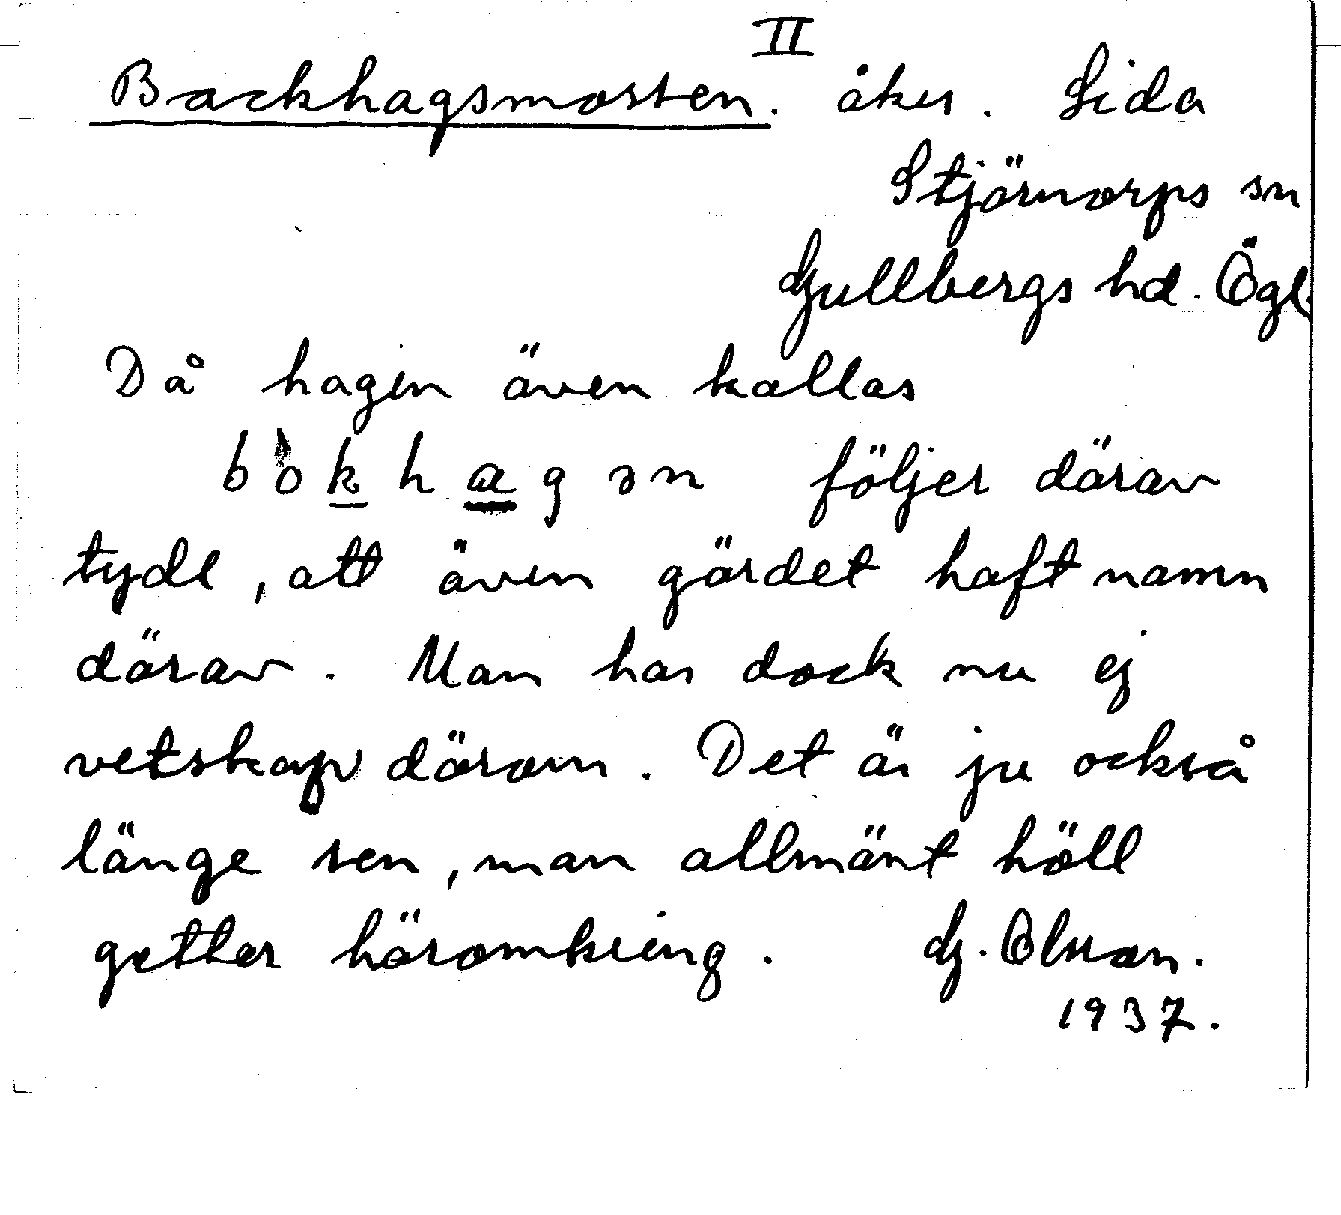 II
Backhagsmossen. åker. Sida
Stjärnorps sn
Gullbergs hd. Ögl.
Då hagen även kallas
bòkhagən följer därav
tydl, att även gärdet haft namn
därav. Man har dock nu ej
vetskap därom. Det är ju också
länge sen, man allmänt höll
getter häromkring. G. Olsson.
1937.